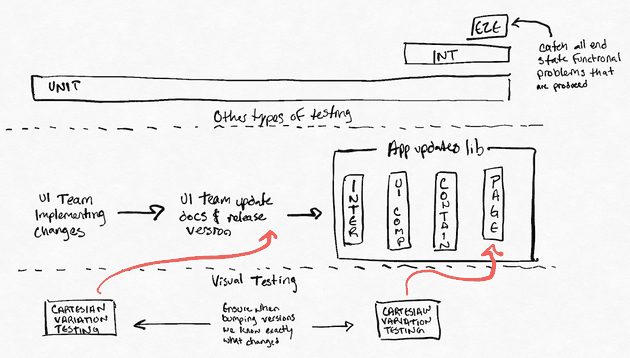 E2E
INT
UNIT
catch all end
state functional
problems that
are produced
Other types of testing
App updates lib
UI Team
Implementing
changes
UI team update
docs & release
version
INTER
UI COMP
CONTAIN
PAGE
Visual Testing
CARTESIAN
VARIATION
TESTING
Ensure when
bumping versions
we know exactly
what changed
CARTESIAN
VARIATION
TESTING